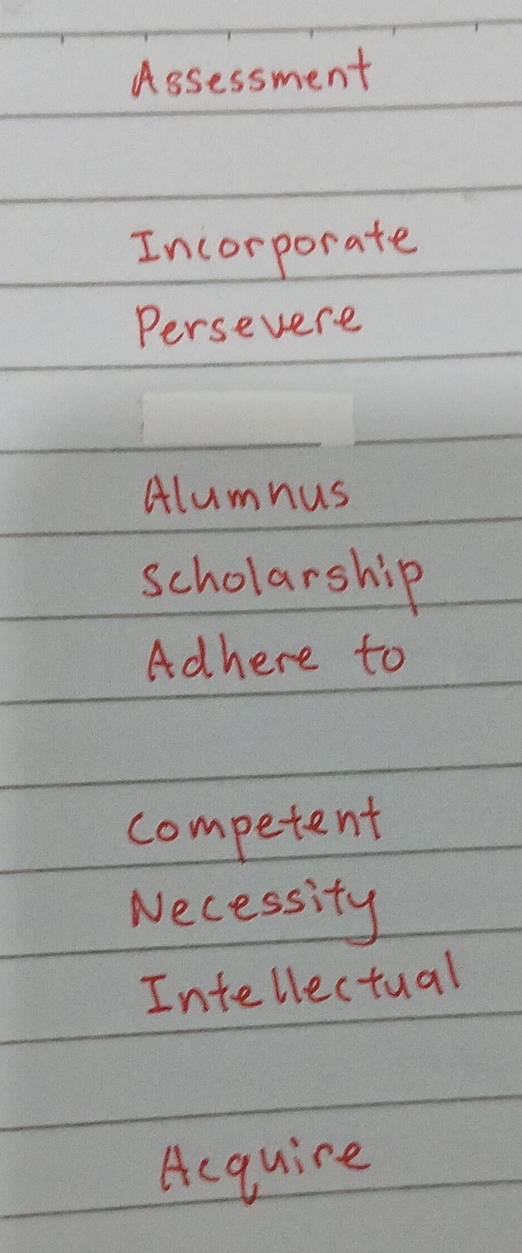 Assessment
Incorporate
Persevere
Alumnus
Scholarship
Adhere to
Competent
Necessity
Intellectual
Acquire